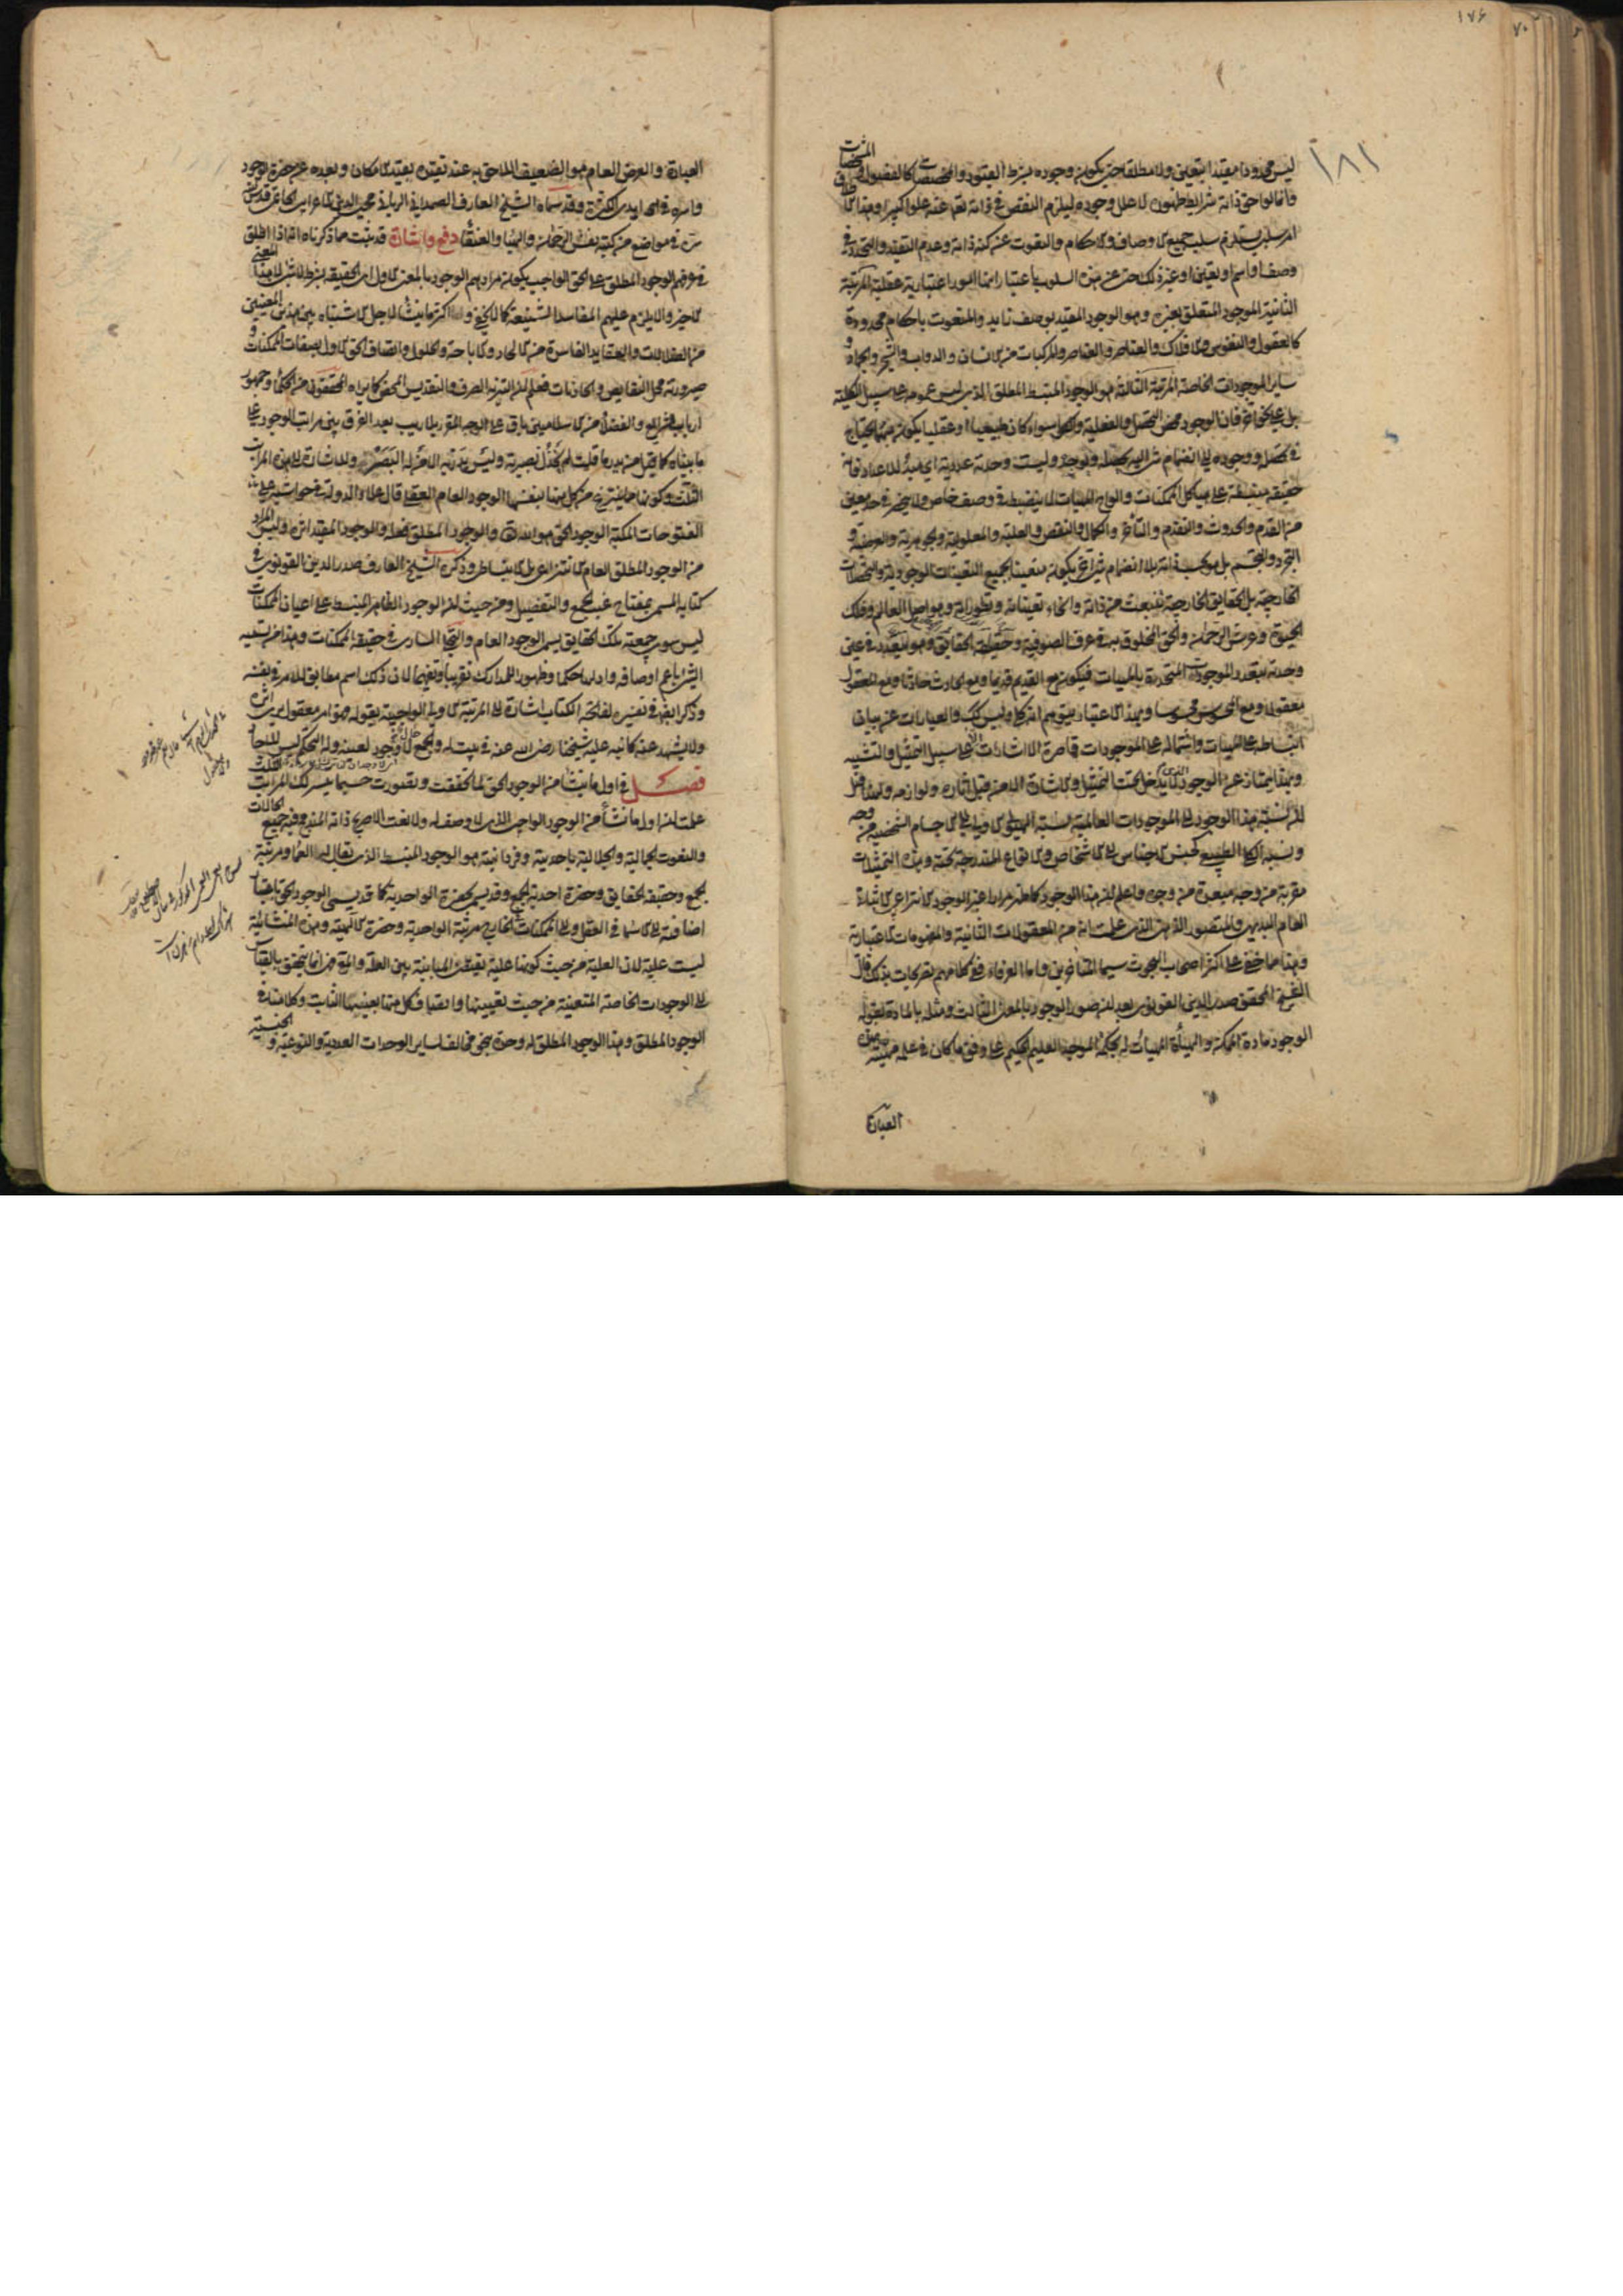 ١٧۶
٧٠
١٨١
ليس محدودا مقيدا بتعين ولا مطلقا حتى يكون وجوده بشرط القيود والمخصصات كالفصول والمشخصات
وانما لواحق ذاته شرايط ظهوره لا علل وجوده ليلزم النقص فى ذاته تعالى عنه علوا كبيرا وهذا الاطلاق
امر سلبى يستلزم سلب جميع الاوصاف والاحكام والنعوت عن كنه ذاته وعدم التقيد والتجدد فى
وصف او اسم او تعين او غير ذلك حتى عن هذه السلوب باعتبار انها امور اعتبارية عقلية المرتبة
الثانية الموجود المتعلق بغيره وهو الوجود المقيد بوصف زايد والمنعوت باحكام محدودة
كالعقول والنفوس والافلاك والعناصر والمركبات من الانسان والدواب والشجر والجماد و
ساير الموجودات الخاصة المرتبة الثالثة هو الوجود المنبسط المطلق الذى ليس عمومه على سبيل الكلية
بل على نحو اخر فان الوجود محض التحصل والفعلية والكلى سواء كان طبيعيا او عقليا يكون مبهما يحتاج
فى تحصله ووجوده الى انضمام شىء اليه يحصله ويوجده وليست وحدته عددية اى مبدأ للاعداد فانه
حقيقة منبسطة على هياكل الممكنات والواح المهيات لا ينضبط فى وصف خاص ولا ينحصر فى حد معين
من القدم والحدوث والتقدم والتأخر والكمال والنقص والعلية والمعلولية والجوهرية والعرضية و
التجرد والتجسم بل هو بحسب ذاته بلا انضمام شىء اخر يكون متعينا بجميع التعينات الوجودية والتحصلات
الخارجية بل الحقايق الخارجية تنبعث من ذاته وانحاء تعيناته وتطوراته وهو اصل العالم وفلك
الحيوة وعرش الرحمان والحق المخلوق به فى عرف الصوفية وحقيقة الحقايق وهو يتعدد فى عين
وحدته بتعدد الموجودات المتحدة بالمهيات فيكون مع القديم قديما ومع الحادث حادثا ومع المعقول
معقولا ومع المحسوس محسوسا وبهذا الاعتبار يتوهم انه كلى وليس كذلك والعبارات عن بيان
انبساطه على المهيات واشتماله على الموجودات قاصرة الاشارات الا على سبيل التمثيل والتشبيه
وبهذا يمتاز عن الوجود الذى لا يدخل تحت التمثيل والاشارة الا من قبل آثاره ولوازمه ولهذا قيل
ان نسبة هذا الوجود الى الموجودات العالمية نسبة الهيولى الاولى الى الاجسام الشخصية من وجه
ونسبة الكلى الطبيعى كجنس الاجناس الى الاشخاص والانواع المندرجة تحته وهذه التمثيلات
مقربة من وجه مبعدة من وجوه واعلم ان هذا الوجود كما ظهر مرارا غير الوجود الانتزاعى الاثباتى
العام البديهى والمتصور الذهنى الذى علمت انه من المعقولات الثانية والمفهومات الاعتبارية
وهذا مما خفى على اكثر اصحاب البحوث سيما المتاخرين واما العرفاء ففى كلامهم تصريحات بذلك قال
الشيخ المحقق صدر الدين القونوى بعد ان صور الوجود بالمعنى الثالث ومثله بالمادة بقوله
الوجود مادة الممكن والهيأة المهياة له بحكمة الموجد العليم الحكيم على وفق ما كان فى علمه مهيئة بهذه
العبارة
العبارة والعرض العام هو الضعيف اللاحق به عند تقيده بقيد الامكان وبعده عن حضرة الوجوب
واسره فى ايدى الكثرة وقد سماه الشيخ العارف الصمدانى الربانى محيى الدين الاعرابى الحاتمى قدس
سره فى مواضع من كتبه نفس الرحمان والهباء والعنقاء دفع واشارة قد ثبت مما ذكرناه انه اذا اطلق
فى عرفهم الوجود المطلق على الحق الواجب يكون مرادهم الوجود بالمعنى الاول اى الحقيقة بشرط لا شىء لا هذا المعنى
الاخير والا يلزم عليهم المفاسد الشنيعة كما لا يخفى وما اكثر ما ينشأ لاجل الاشتباه بين هذين المعنيين
من الضلالات والعقايد الفاسدة من الالحاد والاباحة والحلول واتصاف الحق الاول بصفات الممكنات و
صيرورته محل النقايص والحادثات فعلم ان التنزيه الصرف والتقديس المحض كما يراه المحققون من الحكماء وجمهور
ارباب الشرايع والفضلاء من الاسلاميين باق على الوجه المقرر بلا ريب بعد الفرق بين مراتب الوجود على
ما بيناه كما قيل من يدر ما قلت لم تخذل بصيرته وليس يدريه الا من له البصر وللاشارة الى هذه المراتب
الثلث وكونها مما ينتزع من كل منها بنفسها الوجود العام العقلى قال علاء الدولة فى حواشيه على
الفتوحات المكية الوجود الحق هو الله تعالى والوجود المطلق فعله والوجود المقيد اثره وليس المراد
من الوجود المطلق العام الانتزاعى بل الانبساطى وذكر الشيخ العارف صدر الدين القونوى فى
كتابه المسمى بمفتاح غيب الجمع والتفصيل ومن حيث ان الوجود الظاهر المنبسط على اعيان الممكنات
ليس سوى جمعية تلك الحقايق يسمى الوجود العام والتجلى السارى فى حقيقة الممكنات وهذا من تسمية
الشىء باعم اوصافه واولها حكما وظهورا للمدارك تقريبا وتفهيما لا ان ذلك اسم مطابق للامر فى نفسه
وذكر ايضا فى تفسيره لفاتحة الكتاب اشارة الى المرتبة الاولى الواجبية بقوله فهو امر معقول يرى اثره
ولا يشهد عينه كما نبه عليه شيخنا رضى الله عنه فى بيت له والجمع حال لا وجود لعينه وله التحكم ليس للاحاد
فصل فى اول ما ينشأ من الوجود الحق لما تحققت وتصورت حسبما تيسر لك المراتب الثلث
علمت ان اول ما نشأ من الوجود الواجبى الذى لا وصف له ولا نعت الا صريح ذاته المندمج فيه جميع الحالات
والنعوت الجمالية والجلالية باحديته وفردانيته هو الوجود المنبسط الذى يقال له العماء ومرتبة
الجمع وحقيقة الحقايق وحضرة احدية الجمع وقد يسمى بحضرة الواحدية كما قد يسمى الوجود الحق باعتبار
اضافته الى الاسماء فى العقل والى الممكنات فى الخارج مرتبة الواحدية وحضرة الالهية وهذه المنشائية
ليست علية لان العلية من حيث كونها علية تقتضى المباينة بين العلة والمعلول فهى انما يتحقق بالقياس
الى الوجودات الخاصة المتعينة من حيث تعيينها واتصاف كل منها بعينها الثابت وكلامنا فى
الوجود المطلق وهذا الوجود المطلق له وحدة بنحو مخالف لساير الوحدات العددية والنوعية والجنسية